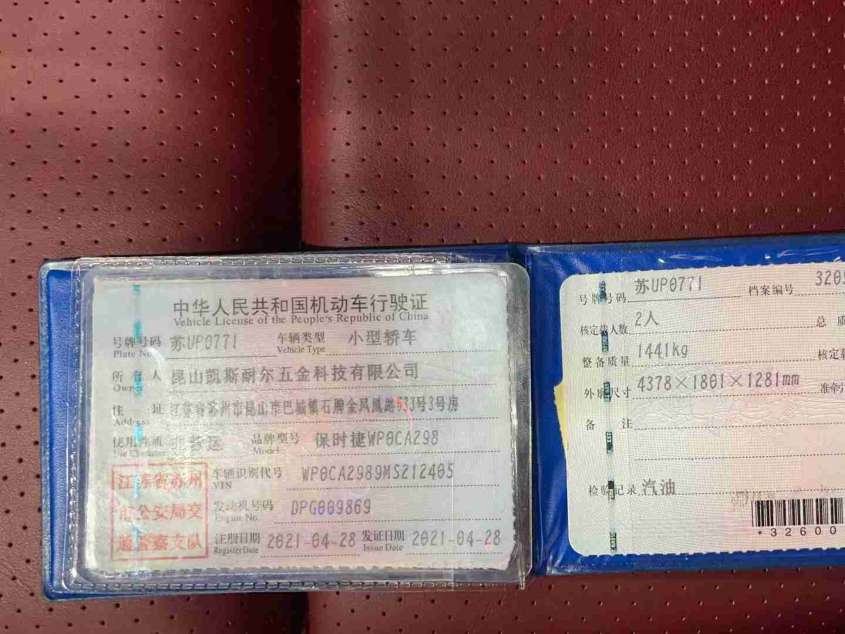 中华人民共和国机动车行驶证
Vehicle License of the People's Republic of China
号牌号码 苏UP0771 车辆类型 小型轿车
Plate No. Vehicle Type
所有人 昆山凯斯耐尔五金科技有限公司
Owner
住址 江苏省苏州市昆山市巴城镇石牌金凤凰路533号3号房
Address
使用性质 非营运 品牌型号 保时捷WP0CA298
Use Character Model
江苏省苏州
市公安局交
通警察支队
车辆识别代号 WP0CA2989MS212405
VIN
发动机号码 DPG009869
Engine No.
注册日期 2021-04-28 发证日期 2021-04-28
Register Date Issue Date
号牌号码 苏UP0771 档案编号 3205
核定载人数 2人 总质
整备质量 1441kg 核定载
外廓尺寸 4378×1801×1281mm 准牵引
备注
检验记录 汽油
*32600